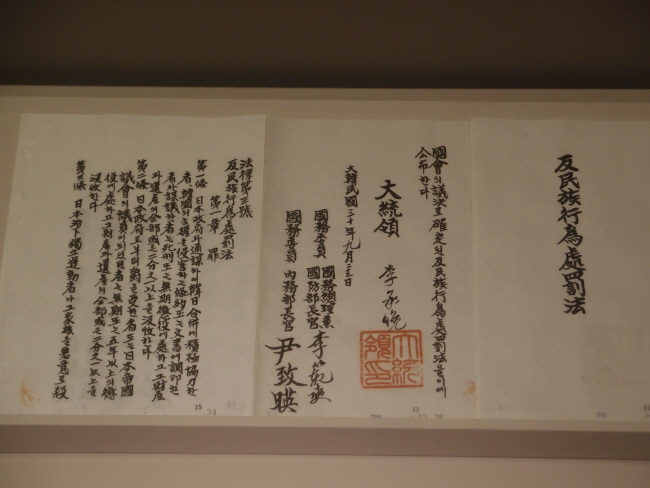 反民族行爲處罰法
國會의議決로確定된反民族行爲處罰法을이에
公布한다
大統領 李承晩
大統領印
大韓民國三十年九月二十二日
國務委員 國務總理兼
國防部長官 李範奭
國務委員 內務部長官 尹致暎
法律第三號
反民族行爲處罰法
第一章 罪
第一條 日本政府와通謀하여韓日合併에積極協力한
者, 韓國의主權을侵害하는條約또는文書에調印한
者와謀議한者는死刑또는無期懲役에處하고그財産
과遺産의全部或은二分之一以上을沒收한다
第二條 日本政府로부터爵을受한者또는日本帝國
議會의議員이되었던者는無期또는五年以上의懲
役에處하고그財産과遺産의全部或은二分之一以上을
沒收한다
第三條 日本治下獨立運動者나그家族을惡意로殺